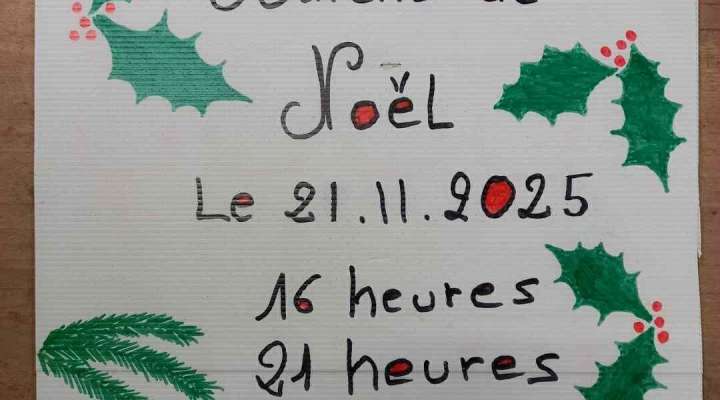 de
Noël
Le 21.11.2025
16 heures
21 heures